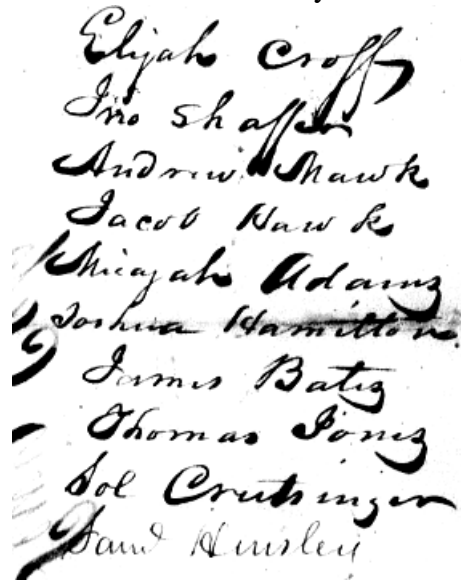 Elijah Croff
Jno Shaffer
Andrew Mawk
Jacob Hawk
Micajah Adams
Joshua Hamilton
James Bates
Thomas Jones
Sol Crutsinger
Saml Hensley